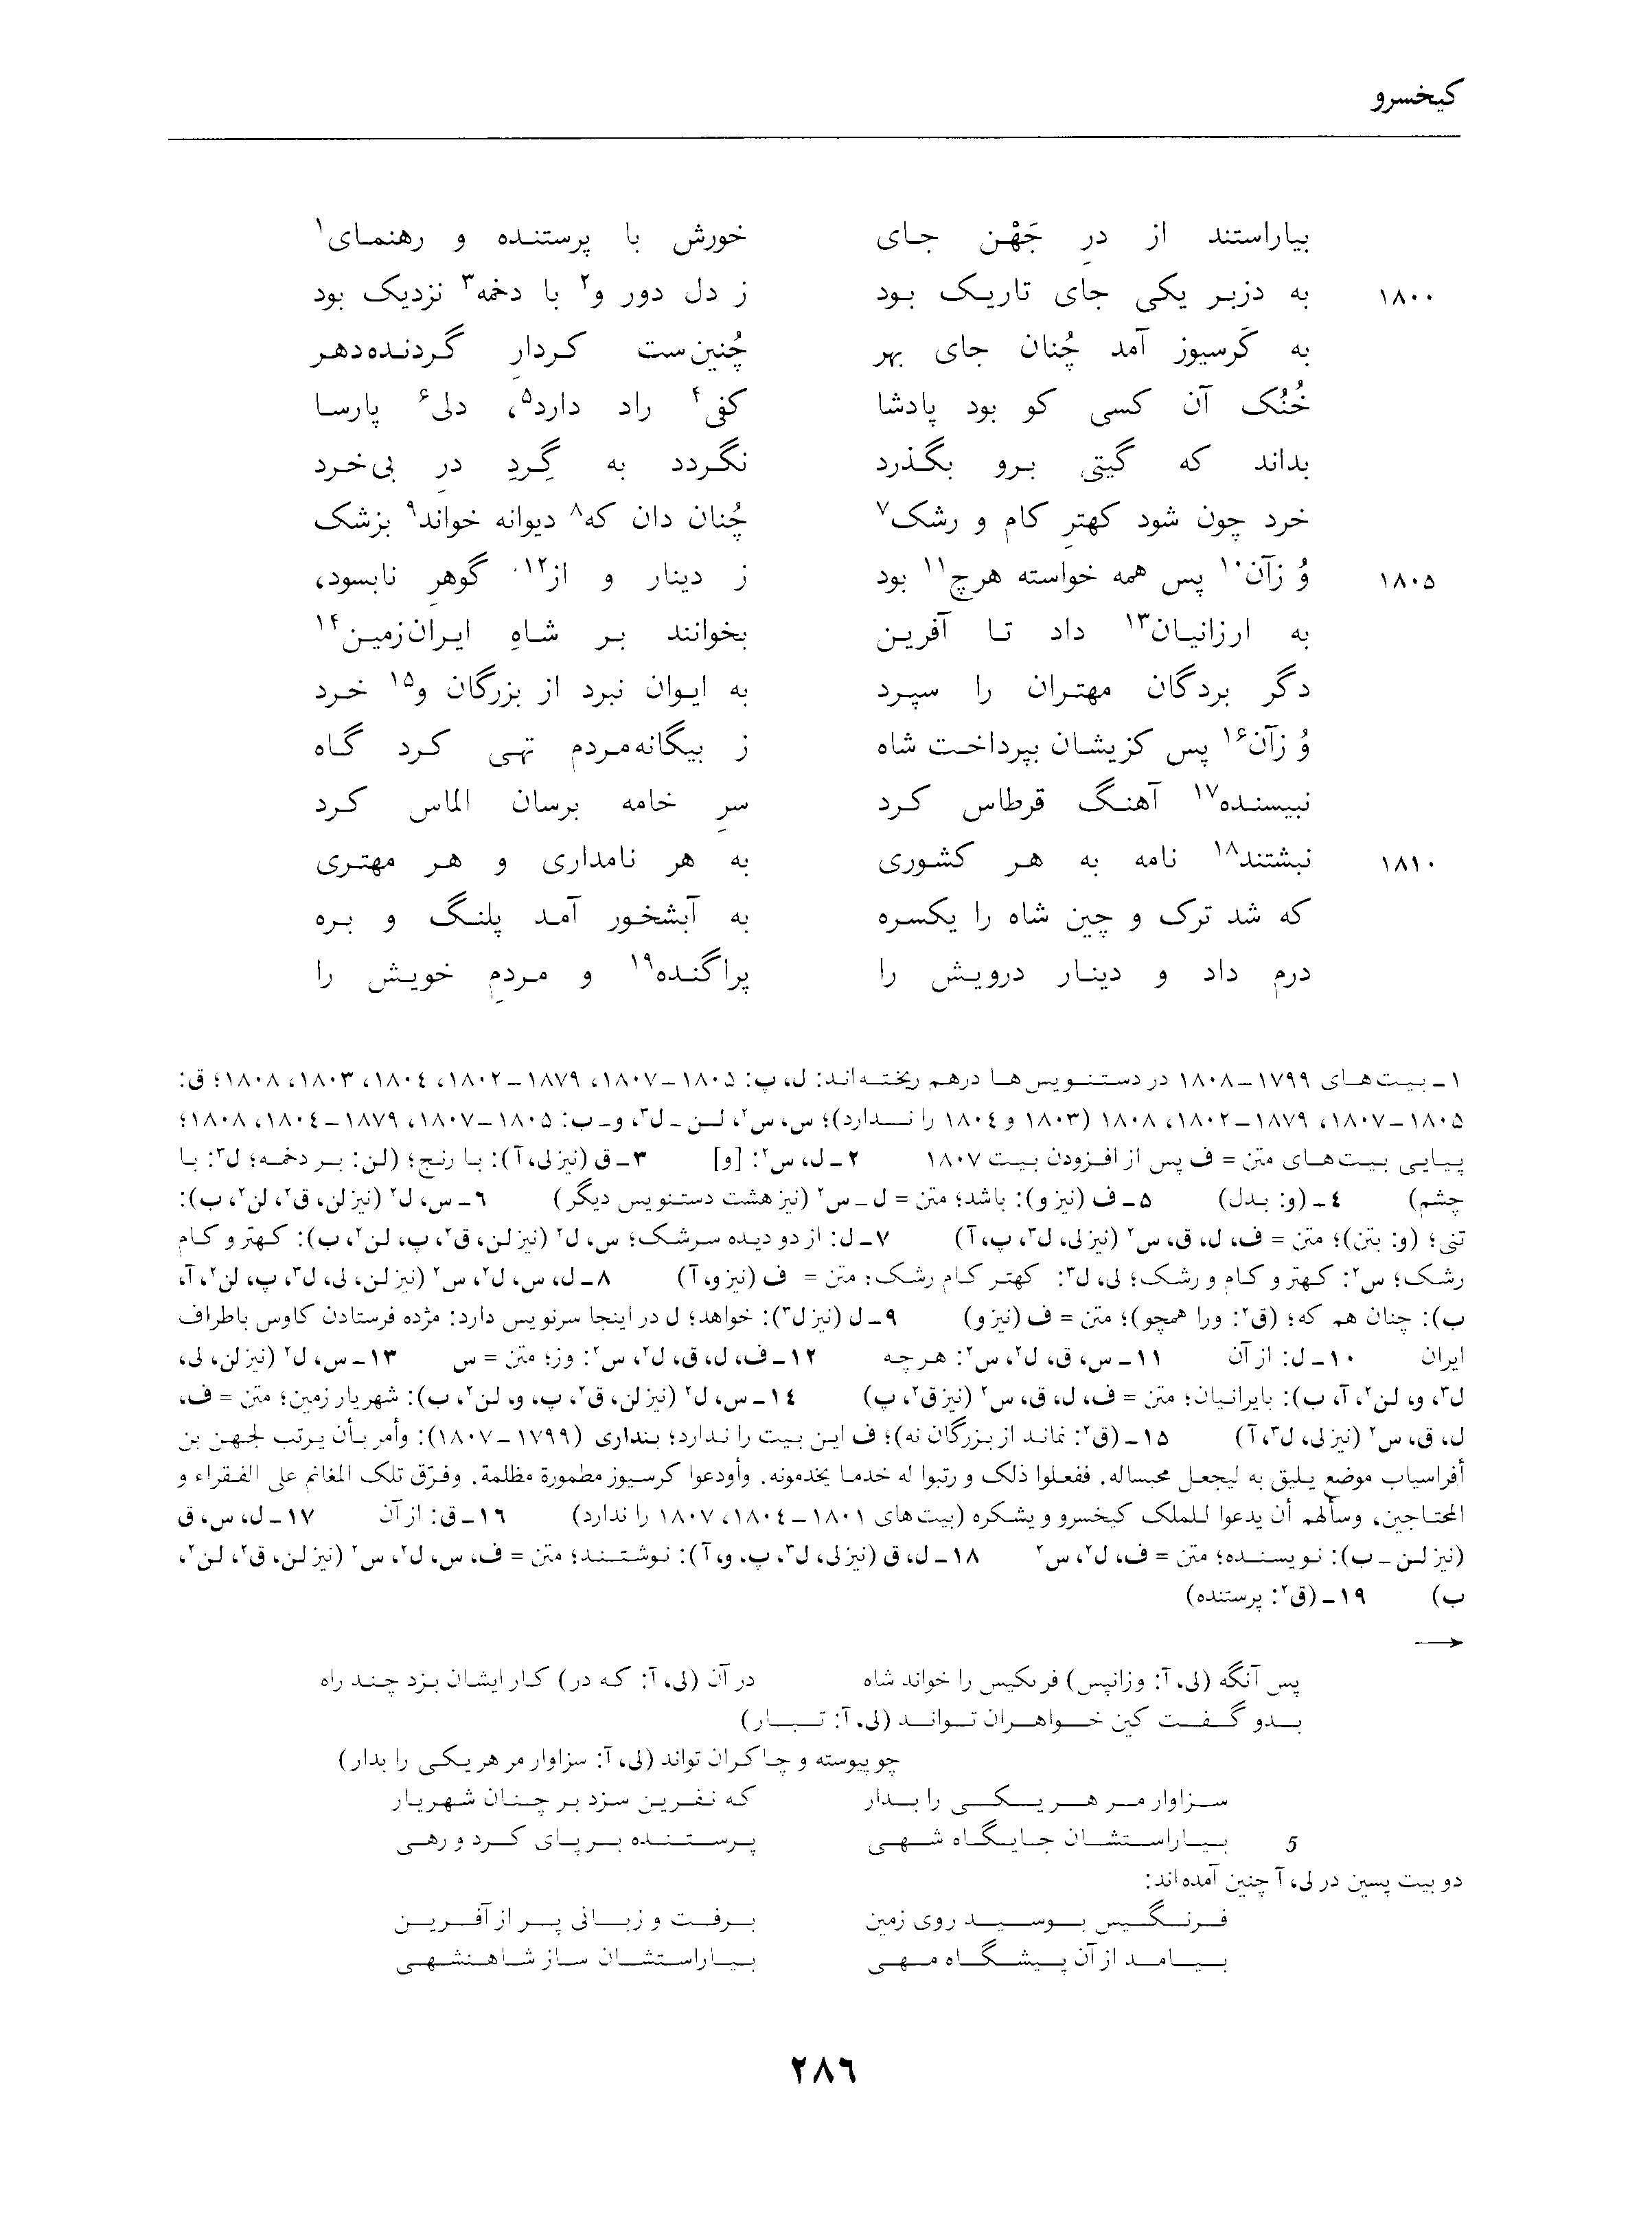 کیخسرو
بیاراستند از درِ جَهْن جای خورش با پرستنده و رهنمای۱
۱۸۰۰ به دزبر یکی جای تاریک بود ز دل دور و۲ با دخمه۳ نزدیک بود
به گَرسیوز آمد چُنان جای بهر چُنین‌ست کردارِ گردنده‌دهر
خُنُک آن کسی کو بود پادشا کفی۴ راد دارد۵، دلی۶ پارسا
بداند که گیتی برو بگذرد نگردد به گِردِ درِ بی‌خرد
خرد چون شود کهترِ کام و رشک۷ چُنان دان که۸ دیوانه خواند۹ بزشک
۱۸۰۵ وُ زآن۱۰ پس همه خواسته هرچ۱۱ بود ز دینار و از۱۲ گوهرِ نابسود،
به ارزانیان۱۳ داد تا آفرین بخوانند بر شاهِ ایران‌زمین۱۴
دگر بردگان مهتران را سپرد به ایوان نبرد از بزرگان و۱۵ خرد
وُ زآن۱۶ پس کزیشان بپرداخت شاه ز بیگانه‌مردم تهی کرد گاه
نبیسنده۱۷ آهنگ قرطاس کرد سرِ خامه برسان الماس کرد
۱۸۱۰ نبشتند۱۸ نامه به هر کشوری به هر نامداری و هر مهتری
که شد ترک و چین شاه را یکسره به آبشخور آمد پلنگ و بره
درم داد و دینار درویش را پراگنده۱۹ و مردمِ خویش را
۱ـ بیت‌های ۱۷۹۹ـ۱۸۰۸ در دستنویس‌ها درهم ریخته‌اند: ل، پ: ۱۸۰۵ـ۱۸۰۷، ۱۸۷۹ـ۱۸۰۲، ۱۸۰۴، ۱۸۰۳، ۱۸۰۸؛ ق:
۱۸۰۵ـ۱۸۰۷، ۱۸۷۹ـ۱۸۰۲، ۱۸۰۸ (۱۸۰۳ و ۱۸۰۴ را ندارد)؛ س، س۲، لن ـ ل۳، و ـ ب: ۱۸۰۵ـ۱۸۰۷، ۱۸۷۹ـ۱۸۰۴، ۱۸۰۸؛
پیاپی بیت‌های متن = ف پس از افزودن بیت ۱۸۰۷ ۲ـ ل، س۲: [و] ۳ـ ق (نیز لی، آ): با رنج؛ (لن: بر دخمه؛ ل۳: با
چشم) ۴ـ (و: بدل) ۵ـ ف (نیز و): باشد؛ متن = ل ـ س۲ (نیز هشت دستنویس دیگر) ۶ـ س، ل۲ (نیز لن، ق۲، لن۲، ب):
تنی؛ (و: بتن)؛ متن = ف، ل، ق، س۲ (نیز لی، ل۳، پ، آ) ۷ـ ل: از دو دیده سرشک؛ س، ل۲ (نیز لن، ق۲، پ، لن۲، ب): کهتر و کام
رشک؛ س۲: کهتر و کام و رشک؛ لی، ل۳: کهتر کام رشک؛ متن = ف (نیز و، آ) ۸ـ ل، س، ل۲، س۲ (نیز لن، لی، ل۳، پ، لن۲، آ،
ب): چنان هم که؛ (ق۲: ورا همچو)؛ متن = ف (نیز و) ۹ـ ل (نیز ل۳): خواهد؛ ل در اینجا سرنویس دارد: مژده فرستادن کاوس باطراف
ایران ۱۰ـ ل: از آن ۱۱ـ س، ق، ل۲، س۲: هرچه ۱۲ـ ف، ل، ق، ل۲، س۲: وز؛ متن = س ۱۳ـ س، ل۲ (نیز لن، لی،
ل۳، و، لن۲، آ، ب): بایرانیان؛ متن = ف، ل، ق، س۲ (نیز ق۲، پ) ۱۴ـ س، ل۲ (نیز لن، ق۲، پ، و، لن۲، ب): شهریار زمین؛ متن = ف،
ل، ق، س۲ (نیز لی، ل۳، آ) ۱۵ـ (ق۲: نماند از بزرگان نه)؛ ف این بیت را ندارد؛ بنداری (۱۷۹۹ـ۱۸۰۷): وأمر بأن یرتب لجهن بن
أفراسیاب موضع یلیق به لیجعل محبساله. ففعلوا ذلک و رتبوا له خدما یخدمونه. وأودعوا کرسیوز مطمورة مظلمة. وفرّق تلک المغانم علی الفقراء و
المحتاجین، وسألهم أن یدعوا للملک کیخسرو و یشکره (بیت‌های ۱۸۰۱ـ۱۸۰۴، ۱۸۰۷ را ندارد) ۱۶ـ ق: از آن ۱۷ـ ل، س، ق
(نیز لن ـ ب): نویسنده؛ متن = ف، ل۲، س۲ ۱۸ـ ل، ق (نیز لی، ل۳، پ، و، آ): نوشتند؛ متن = ف، س، ل۲، س۲ (نیز لن، ق۲، لن۲،
ب) ۱۹ـ (ق۲: پرستنده)
→
پس آنگه (لی، آ: وزانپس) فرنکیس را خواند شاه در آن (لی، آ: که در) کار ایشان بزد چند راه
بدو گفت کین خواهران تواند (لی، آ: تبار)
چو پیوسته و چاکران تواند (لی، آ: سزاوار مر هر یکی را بدار)
سزاوار مر هر یکی را بدار که نفرین سزد بر چنان شهریار
5 بیاراستشان جایگاه شهی پرستنده بر پای کرد و رهی
دو بیت پسین در لی، آ چنین آمده‌اند:
فرنگیس بوسید روی زمین برفت و زبانی پر از آفرین
بیامد از آن پیشگاه مهی بیاراستشان ساز شاهنشهی
۲۸۶